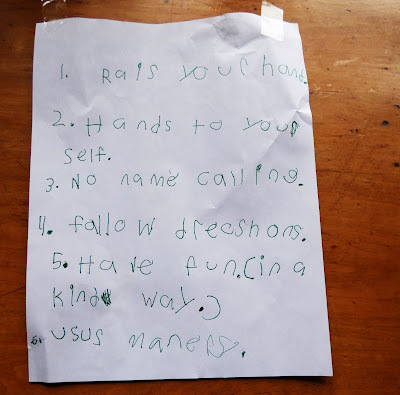 1. Rais your hand.
2. Hands to your
self.
3. No name calling.
4. follow dreashons.
5. Have fun. (in a
kind way.)
6. usus maners.